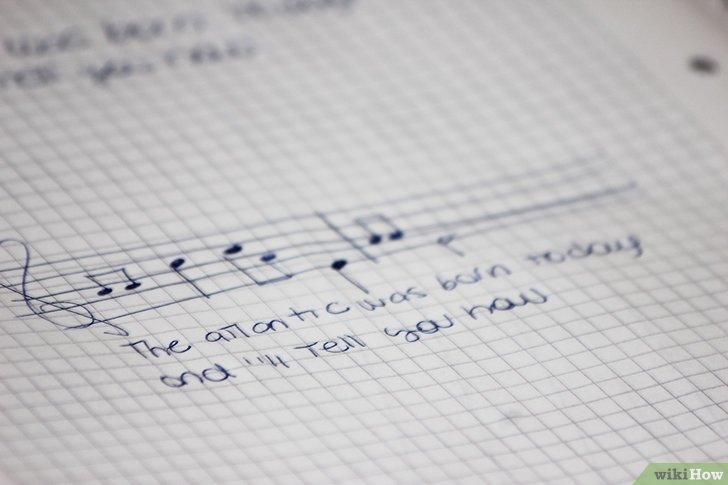 was born
you how
The atlantic was born today
and i'll Tell you how
wikiHow